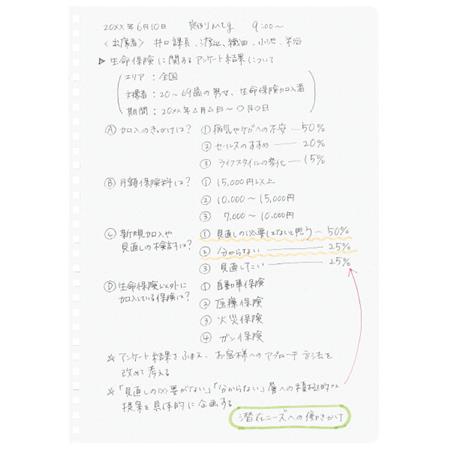 20xx年6月10日 定例Mtg 9:00〜
〈出席者〉 井口課長、渡辺、織田、小池、
▶ 生命保険に関するアンケート結果について
エリア : 全国
対象者 : 20〜69歳の男女、生命保険加入者
期間 : 20xx年△月△日〜○月○日
Ⓐ 加入のきっかけは? ① 病気やケガへの不安 ― 50%
② セールスのすすめ ― 20%
③ ライフスタイルの変化 ― 15%
Ⓑ 月額保険料は? ① 15,000円以上
② 10,000〜15,000円
③ 7,000〜10,000円
Ⓒ 新規加入や見直しの検討は? ① 見直しの必要はないと思う ― 50%
② 分からない ― 25%
③ 見直したい ― 25%
Ⓓ 生命保険以外に加入している保険は? ① 自動車保険
② 医療保険
③ 火災保険
④ ガン保険
※ アンケート結果をふまえ、お客様へのアプローチ方法を
改めて考える
※「見直しの必要がない」「分からない」層への積極的な
提案を具体的に企画する
潜在ニーズへの働きかけ